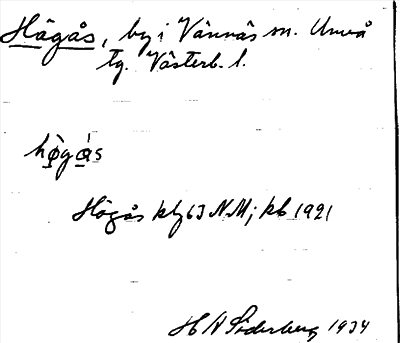 Högås, by i Vännäs sn. Umeå
tg. Västerb. l.
hø̀gás
Högås kbl 63 NM; kb 1921
H A Söderberg 1934